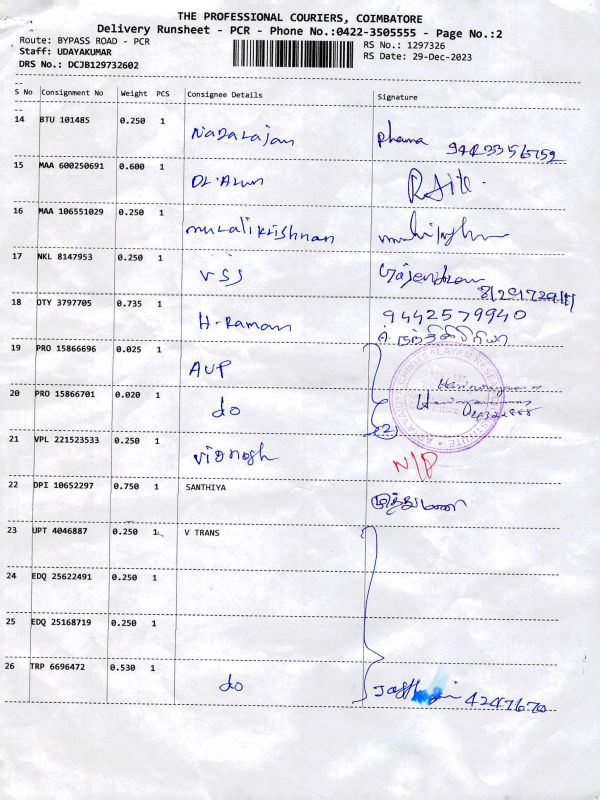 THE PROFESSIONAL COURIERS, COIMBATORE
Delivery Runsheet - PCR - Phone No.:0422-3505555 - Page No.:2
Route: BYPASS ROAD - PCR RS No.: 1297326
Staff: UDAYAKUMAR RS Date: 29-Dec-2023
DRS No.: DCJB129732602
S No Consignment No Weight PCS Consignee Details Signature
14 BTU 101485 0.250 1 Nadarajan
15 MAA 600250691 0.600 1 Dr. Arun
16 MAA 106551029 0.250 1 muralikrishnan
17 NKL 8147953 0.250 1 VSS Gajendran
18 OTY 3797705 0.735 1 H. Raman 9442579940
19 PRO 15866696 0.025 1 AVP
20 PRO 15866701 0.020 1 do
21 VPL 221523533 0.250 1 N/P
22 DPI 10652297 0.750 1 SANTHIYA
23 UPT 4046887 0.250 1 V TRANS
24 EDQ 25622491 0.250 1
25 EDQ 25168719 0.250 1
26 TRP 6696472 0.530 1 do 4247670